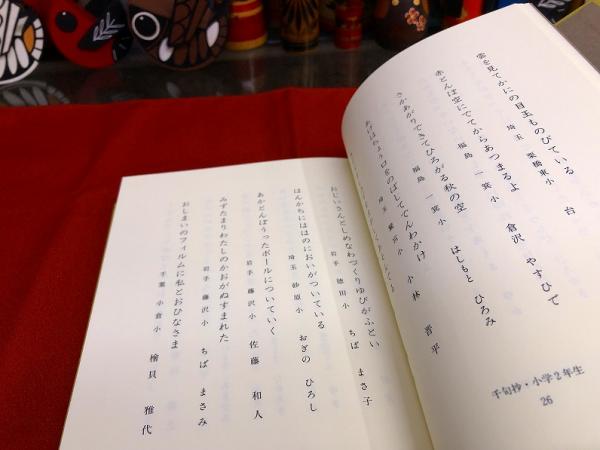 雲を見てかにの目玉ものびている
埼玉 栗橋東小 台
赤とんぼ空にでてからあつまるよ
福島 一箕小 倉沢 やすひで
さかあがりできてひろがる秋の空
福島 一箕小 はしもと ひろみ
あげはちょう口をのばしてでんわかけ
埼玉 小林 晋平
千句抄・小学2年生
26
おじいさんとしめなわづくりゆびがふとい
岩手 徳田小 ちば まさ子
はんかちにははのにおいがついている
埼玉 砂原小 おぎの ひろし
あかとんぼうったボールについていく
岩手 藤沢小 佐藤 和人
みずたまりわたしのかおがぬすまれた
岩手 藤沢小 ちば まさみ
おしまいのフィルムに私とおひなさま
千葉 小倉小 檜貝 雅代